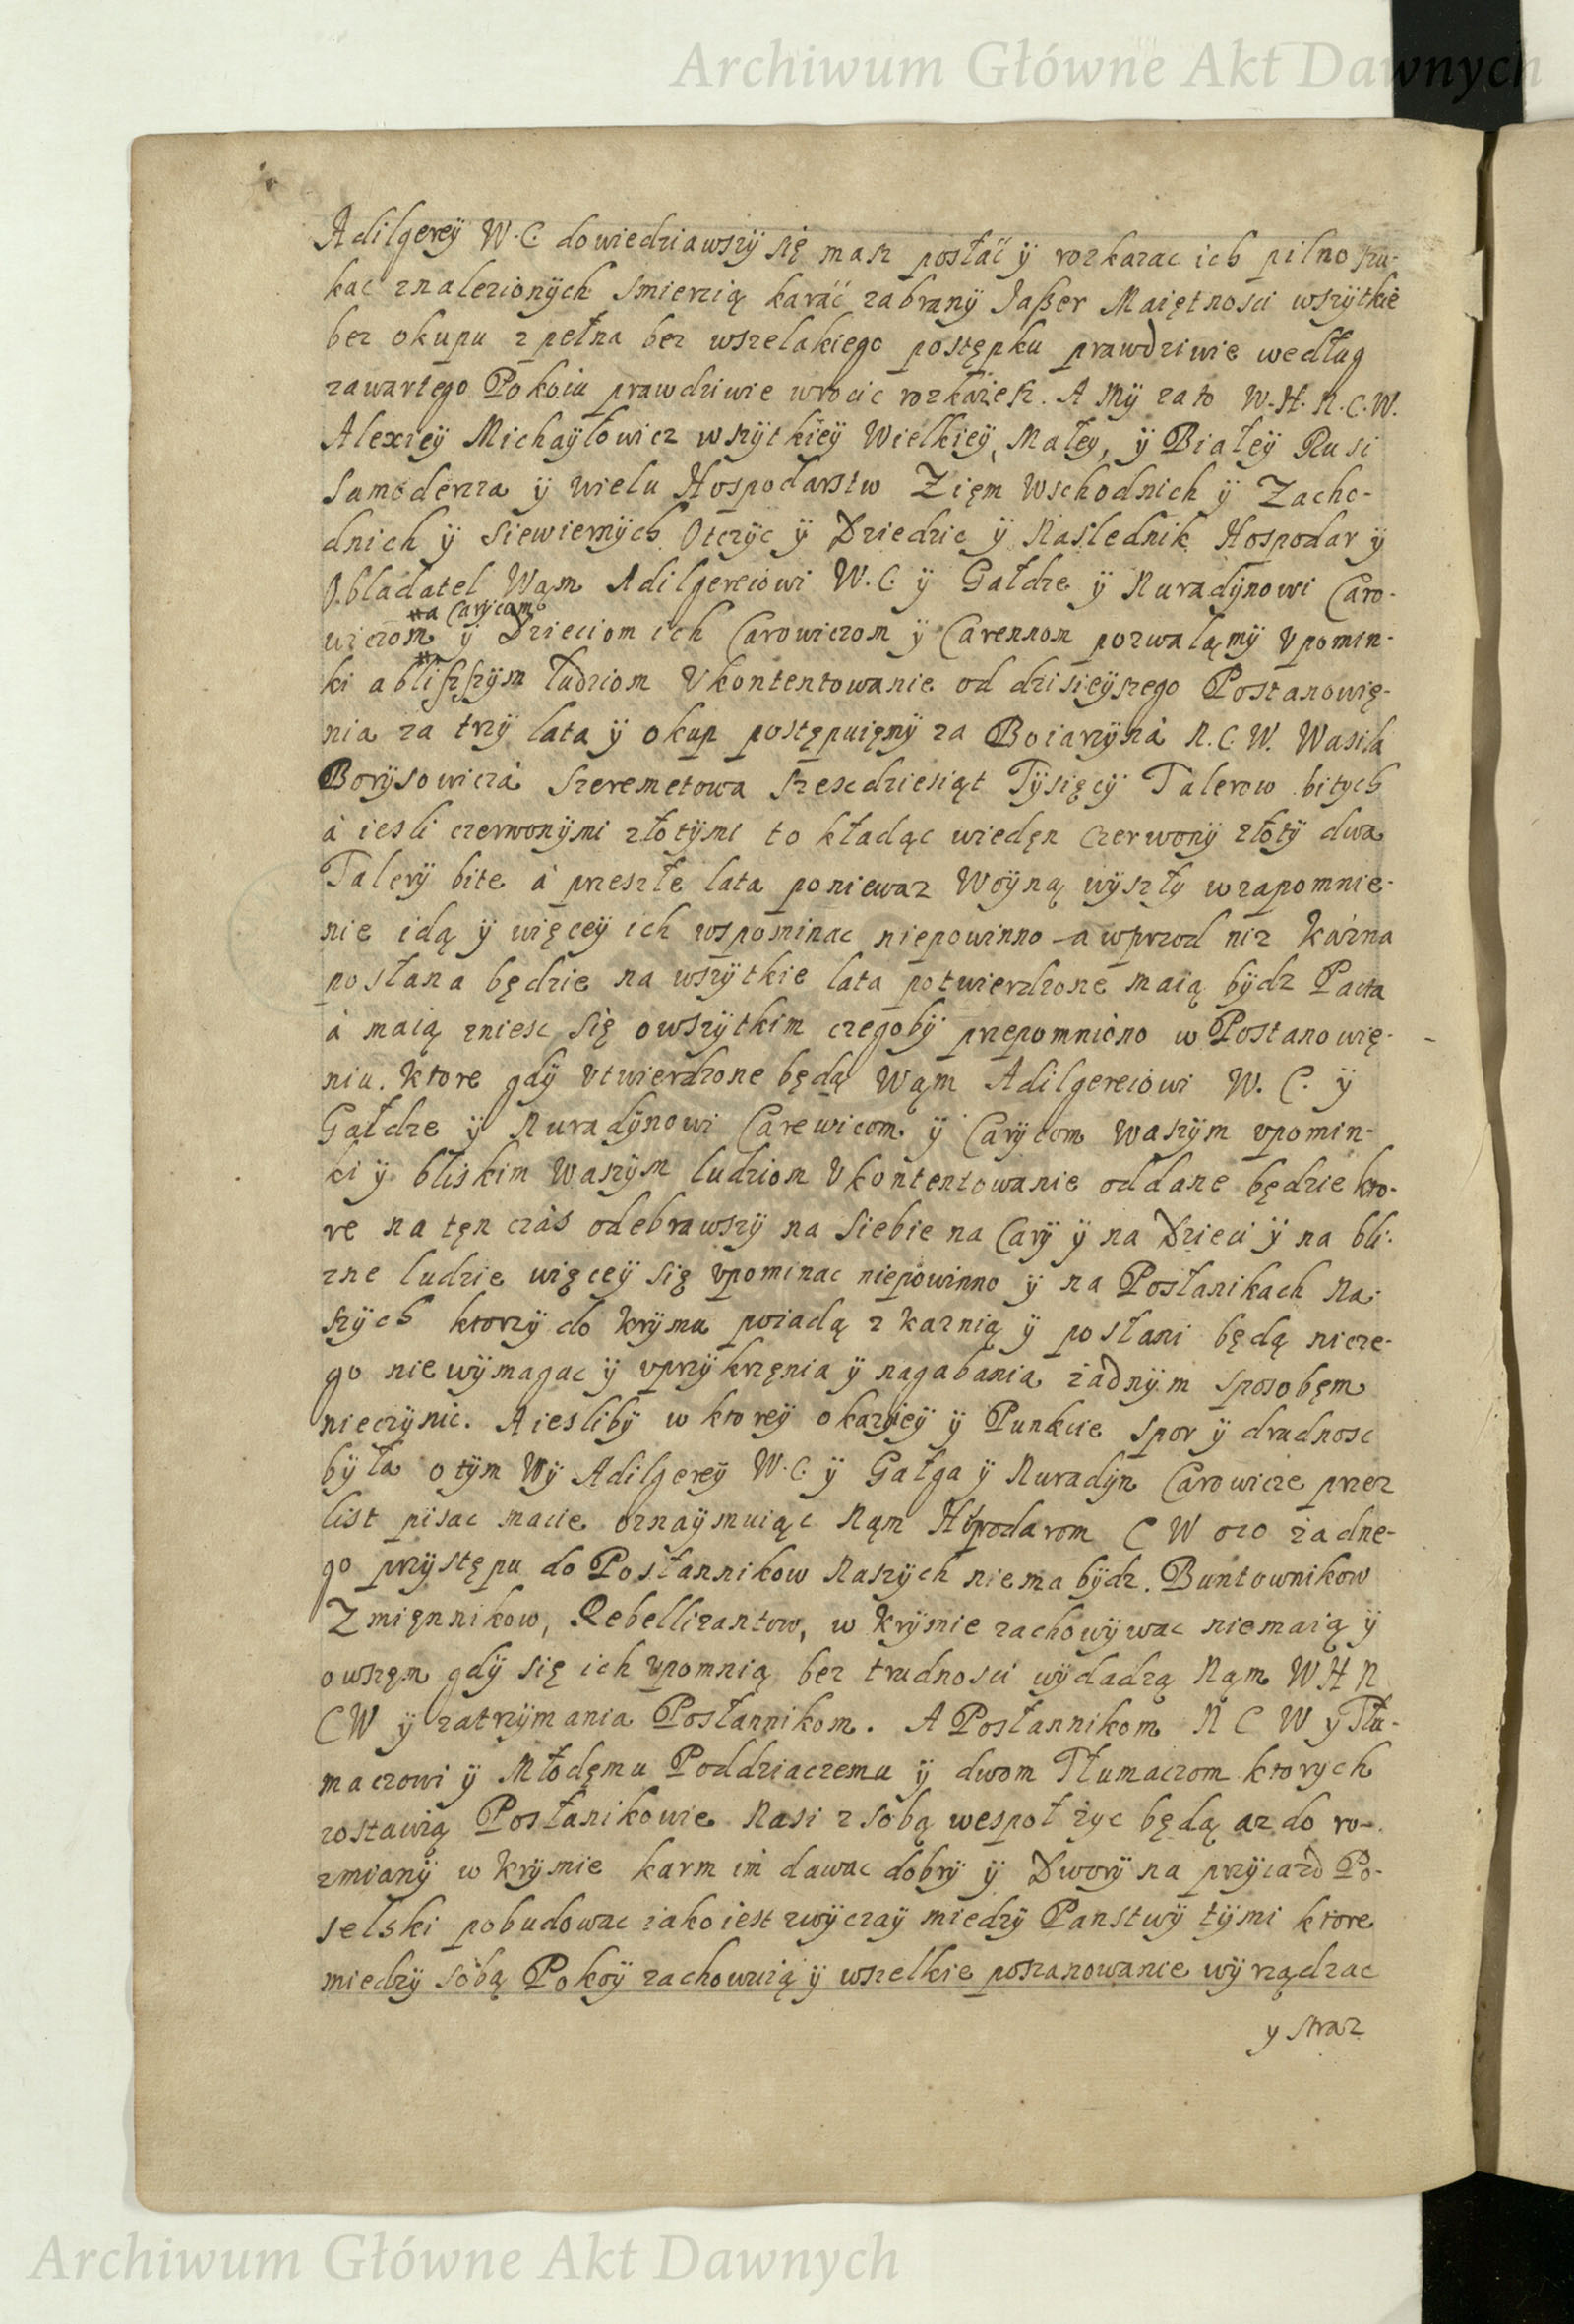 Archiwum Główne Akt Dawnych
Adilgereÿ W. C. dowiedziawszÿ się masz posłáć ÿ rozkazac ich pilno szu-
kac znalezionÿch smierzią karáć zabranÿ Jaßer Maiętnosci wszÿtkie
bez okupu z pełna bez wszelakiego postępku prawdziwie według
zawartego Pokoiu prawdziwie wrocic rozkażesz. A Mÿ zato W. H. N. C. W.
Alexieÿ Michaÿłowicz wszÿtkieÿ Wielkieÿ, Małey, ÿ Białeÿ Rusi
Samoderza ÿ wielu Hospodarstw Zięm Wschodnich ÿ Zacho-
dnich ÿ Siewiernÿch Otczÿc ÿ Dziedzic ÿ Naslednik Hospodar ÿ
Obladatel Wąm Adilgereiowi W. C. ÿ Gałdze ÿ Nuradÿnowi Caro-
#a Carÿcam
wiczom ÿ Dzieciom ich Carowiczom ÿ Carennom pozwaląmÿ Vpomin-
ki a bliszszÿm łudziom Vkontentowanie od dzisieÿszego Postanowię-
nia za trzÿ lata ÿ okup postępuięnÿ za Boiarzÿna N. C. W. Wasila
Borÿsowiczá Szeremetowa szescdziesiąt Tÿsięcÿ Talerow bitych
á iesli czerwonÿmi złotÿmi to kładąc wiedęn czerwonÿ złotÿ dwa
Talerÿ bite á przeszłe lata poniewaz Woÿną wÿszłÿ wzapomnie-
nie idą ÿ więceÿ ich wspominac niepowinno a wprzod niz káżna
posłana będzie na wszÿtkie lata potwierdzone maią bÿdz Pacta
á maią zniesc się owszÿtkim czegobÿ przepomniono w Postanowię-
niu. Ktore gdÿ vtwierdzone będą Wąm Adilgereiowi W. C. ÿ
Gałdze ÿ Nuradÿnowi Carewicom ÿ Carÿcom Waszÿm vpomin-
ki ÿ bliskim Waszÿm ludziom Vkontentowanie oddane będzie kto-
re na tęn czás odebrawszÿ na siebie na Carÿ ÿ na Dzieci ÿ na bli-
zne ludzie więceÿ się vpominac niepowinno ÿ na Posłanikach Na-
szÿch ktorzÿ do Krÿmu poiadą z kaznią ÿ posłani będą nicze-
go niewÿmagac ÿ vprzÿkrzęnia ÿ nagabania żadnÿm sposobęm
nieczÿnic. A ieslibÿ w ktoreÿ okazÿieÿ ÿ Punkcie spor ÿ drudnosc
bÿła o tÿm Wÿ Adilgereÿ W. C. ÿ Gałga ÿ Nuradÿn Carowicze przez
list pisac macie oznaÿmuiąc Nąm Hspodarom C W ozo żadne-
go przÿstępu do Posłannikow Naszÿch niema bÿdz. Buntownikow
Zmięnnikow, Rebellizantow, w Krÿmie zachowÿwac niemaią ÿ
owszęm gdÿ się ich vpomnią bez trudnosci wÿdadzą Nąm W H N
C W ÿ zatrzÿmania Posłannikom. A Posłannikom N C W y Tłu-
maczowi ÿ Młodęmu Poddziaczemu ÿ dwom Tłumaczom ktorych
zostawią Posłanikowie Nasi z sobą wespoł życ będą az do ro-
zmianÿ w Krÿmie karm im dawac dobrÿ ÿ Dworÿ na przÿiazd Po-
selski pobudowac iako iest zwÿczaÿ miedzÿ Panstwÿ tÿmi ktore
miedzÿ sobą Pokoÿ zachowuią ÿ wszelkie poszanowanie wÿrządzac
y straz
Archiwum Główne Akt Dawnych